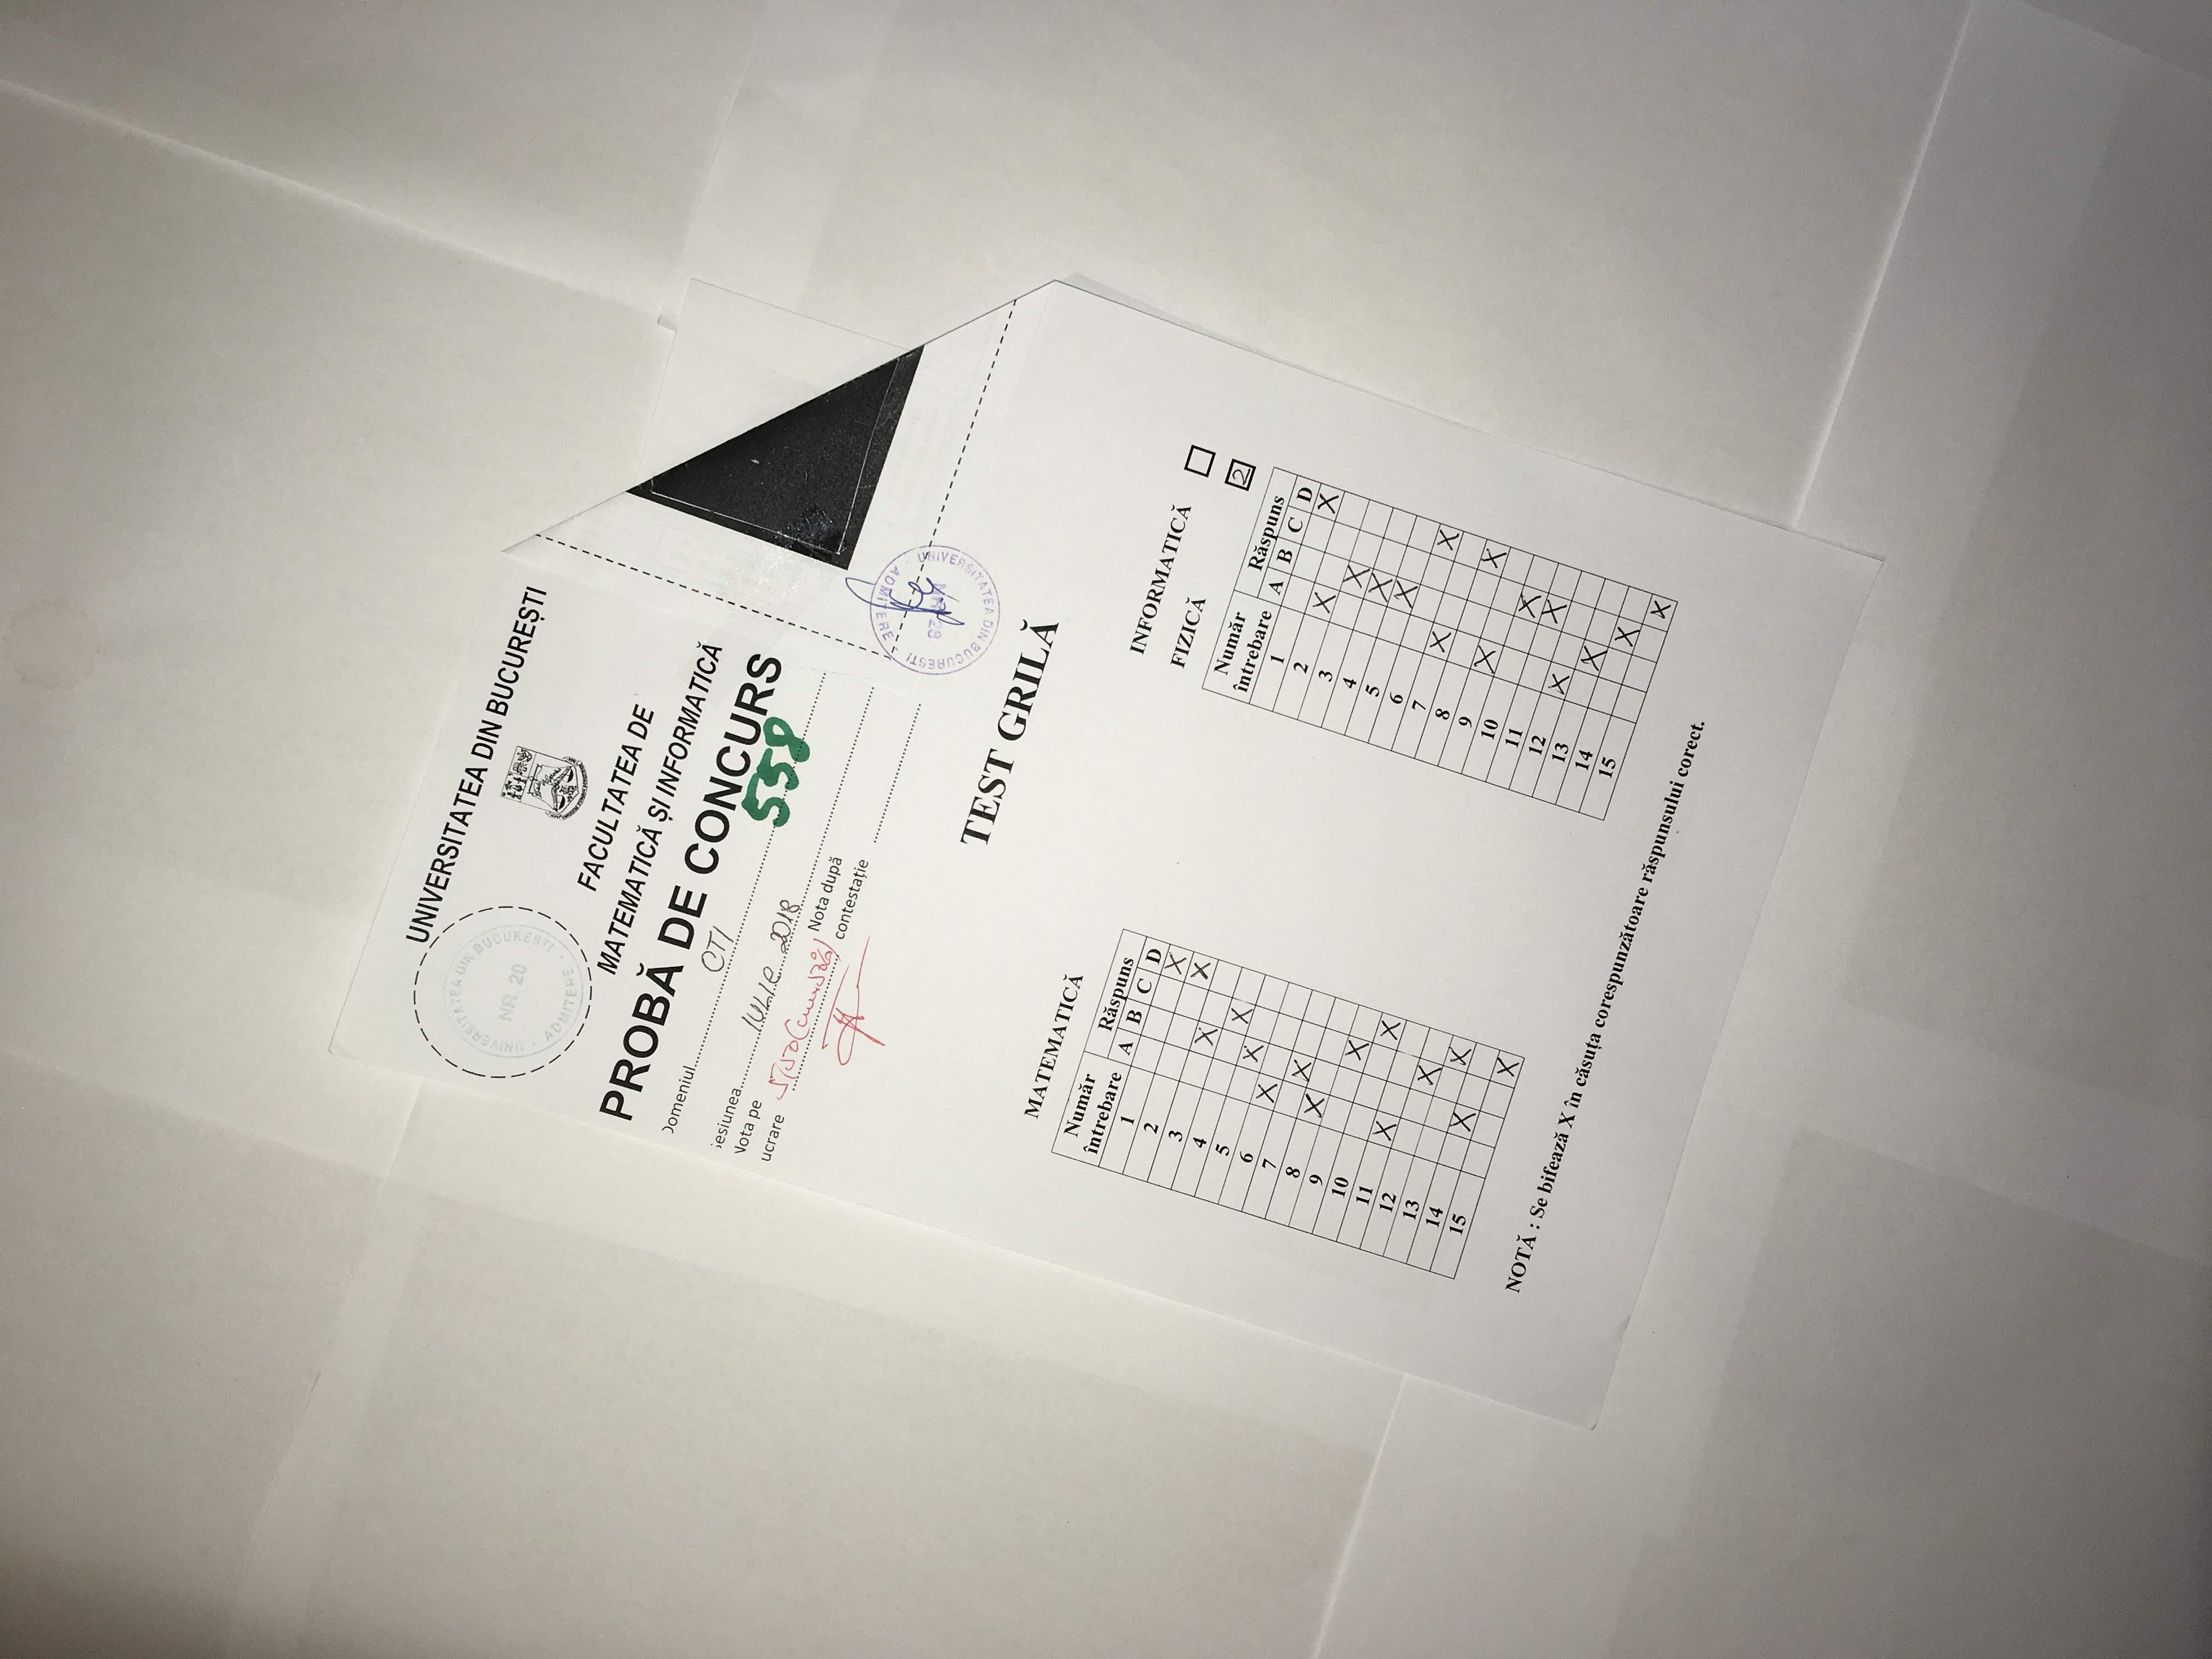 UNIVERSITATEA DIN BUCUREȘTI
UNIVERSITATEA DIN BUCUREȘTI · ADMITERE ·
NR. 20
FACULTATEA DE
MATEMATICĂ ȘI INFORMATICĂ
PROBĂ DE CONCURS
Domeniul CTI
558
Sesiunea IULIE 2018
Nota pe
lucrare 5,50
Nota după
contestație
UNIVERSITATEA DIN BUCURESTI · ADMITERE
NR. 28
TEST GRILĂ
MATEMATICĂ
Număr
întrebare
Răspuns
A B C D
1 X
2 X
3 X
4 X
5 X
6 X
7 X
8 X
9 X
10 X
11 X
12 X
13 X
14 X
15 X
INFORMATICĂ
FIZICĂ 2
Număr
întrebare
Răspuns
A B C D
1 X
2 X
3 X
4 X
5 X
6 X
7 X
8 X
9 X
10 X
11 X
12 X
13 X
14 X
15 X
NOTĂ : Se bifează X în căsuța corespunzătoare răspunsului corect.